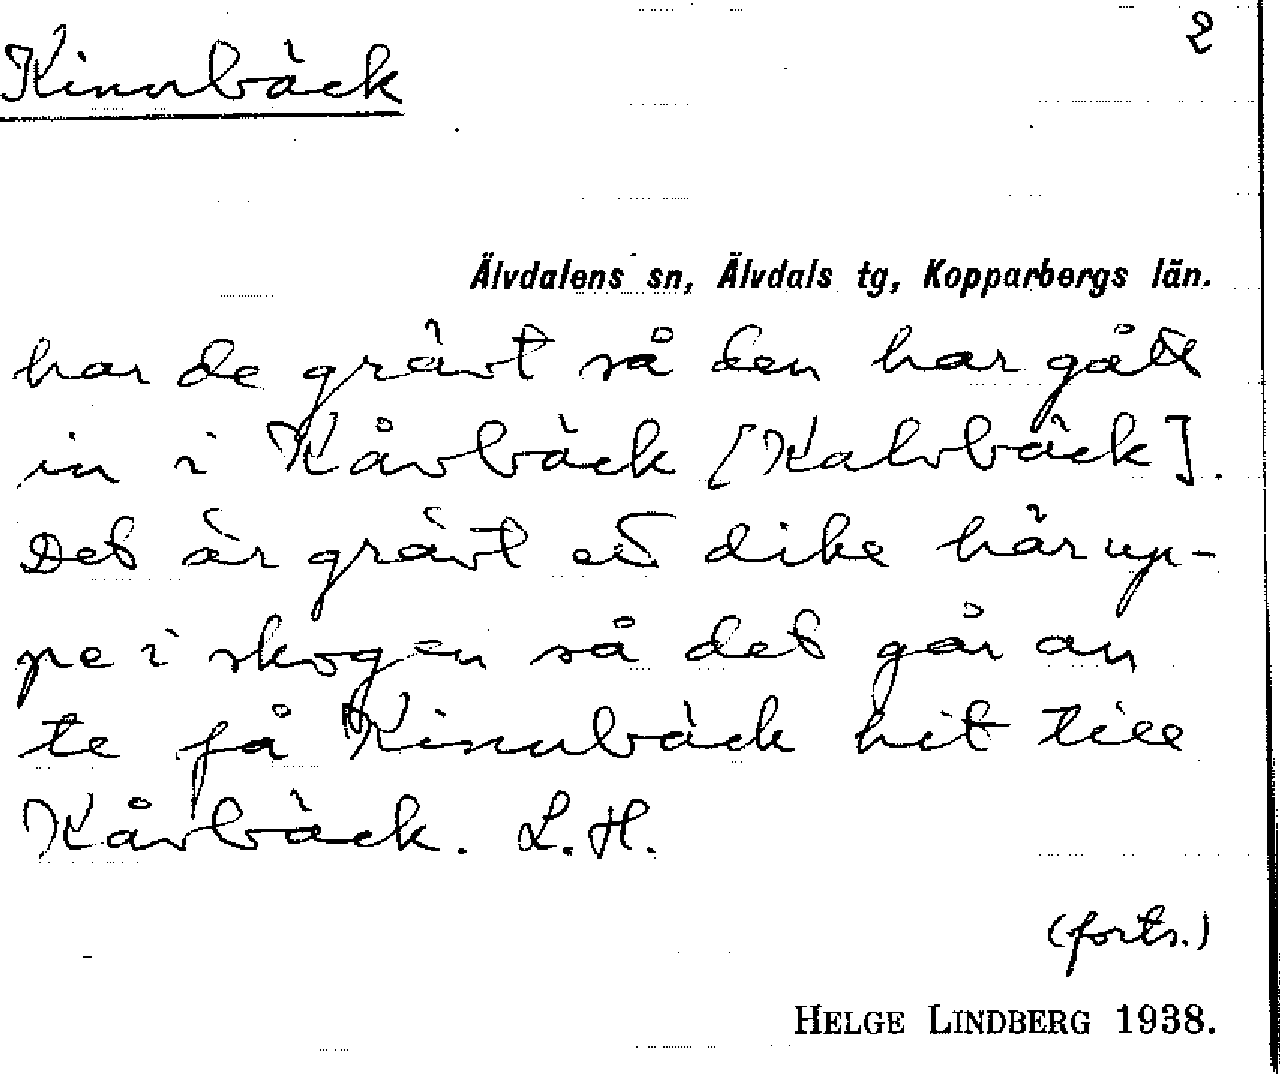 2
Kinnbäck
Älvdalens sn, Älvdals tg, Kopparbergs län.
har de grävt så den har gått
in i Kåvbäck [Kalvbäck].
Det är grävt ett dike här up-
pe i skogen så det går an
te få Kinnbäck hit till
Kåvbäck. L.H.
(forts.)
HELGE LINDBERG 1938.